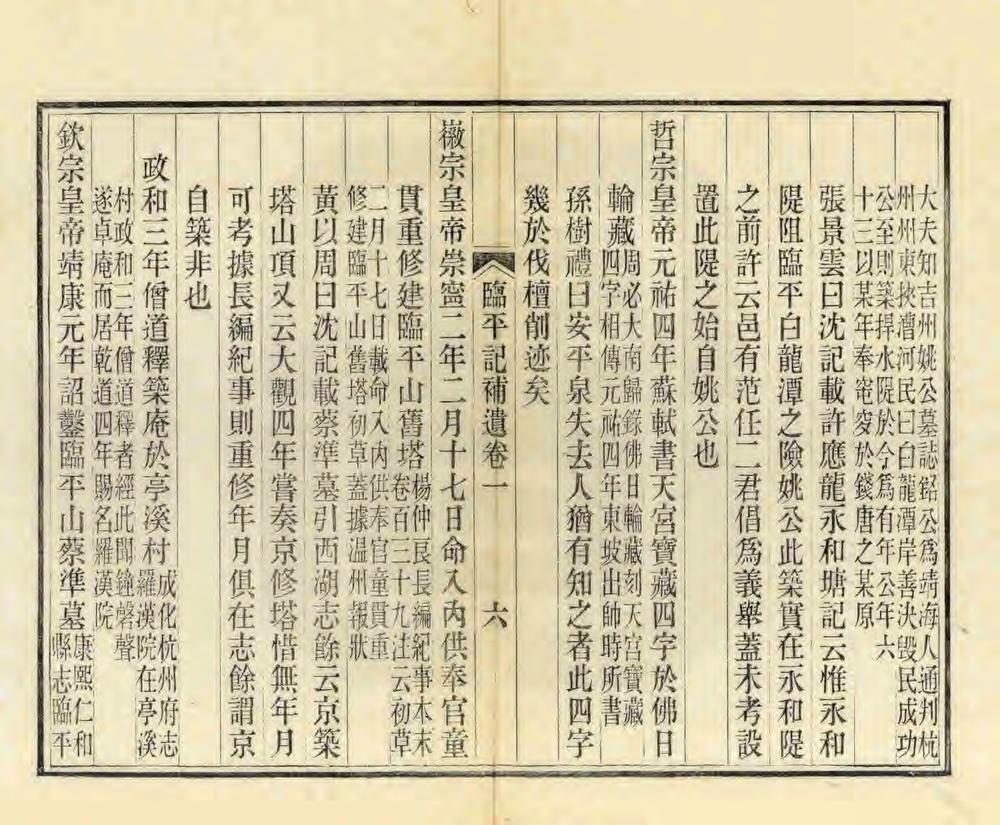 大夫知吉州姚公墓誌銘公爲靖海人通判杭
州州東挾漕河民曰白龍潭岸善決毀民成功
公至則築捍水隄於今爲有年公年六
十三以某年奉窀穸於錢唐之某原
張景雲曰沈記載許應龍永和塘記云惟永和
隄阻臨平白龍潭之險姚公此築實在永和隄
之前許云邑有范任二君倡爲義舉蓋未考設
置此隄之始自姚公也
哲宗皇帝元祐四年蘇軾書天宮寶藏四字於佛日
輪藏
周必大南歸錄佛日輪藏刻天宮寶藏
四字相傳元祐四年東坡出帥時所書
孫樹禮曰安平泉失去人猶有知之者此四字
幾於伐檀削迹矣
臨平記補遺卷一 六
徽宗皇帝崇寧二年二月十七日命入內供奉官童
貫重修建臨平山舊塔
楊仲良長編紀事本末
卷百三十九注云初草
二月十七日載命入內供奉官童貫重
修建臨平山舊塔初草蓋據温州報狀
黃以周曰沈記載蔡準墓引西湖志餘云京築
塔山項又云大觀四年嘗奏京修塔惜無年月
可考據長編紀事則重修年月俱在志餘謂京
自築非也
政和三年僧道釋築庵於亭溪村
成化杭州府志
羅漢院在亭溪
村政和三年僧道釋者經此聞鐘磬聲
遂卓庵而居乾道四年賜名羅漢院
欽宗皇帝靖康元年詔鑿臨平山蔡準墓
康熙仁和
縣志臨平